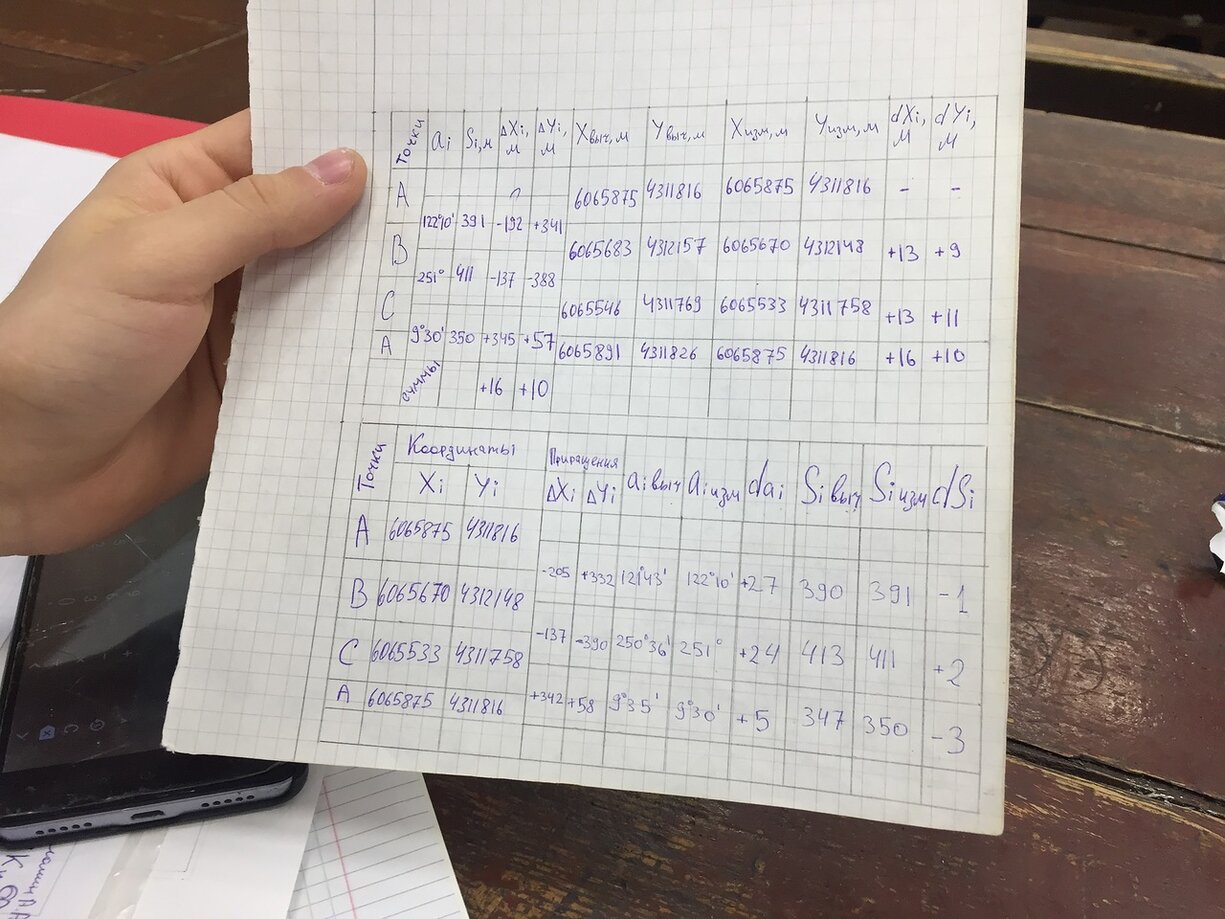 Точки ai Si,м ΔXi,м ΔYi,м Xвыч,м Yвыч,м Xизм,м Yизм,м dXi,м dYi,м
A 6065875 4311816 6065875 4311816 - -
122°10' 391 -192 +341
B 6065683 4312157 6065670 4312148 +13 +9
251° 411 -137 -388
C 6065546 4311769 6065533 4311758 +13 +11
9°30' 350 +345 +57
A 6065891 4311826 6065875 4311816 +16 +10
суммы +16 +10
Точки Координаты Приращения ai выч ai изм dai Si выч Si изм dSi
Xi Yi ΔXi ΔYi
A 6065875 4311816
-205 +332 121°43' 122°10' +27 390 391 -1
B 6065670 4312148
-137 -390 250°36' 251° +24 413 411 +2
C 6065533 4311758
+342 +58 9°35' 9°30' +5 347 350 -3
A 6065875 4311816